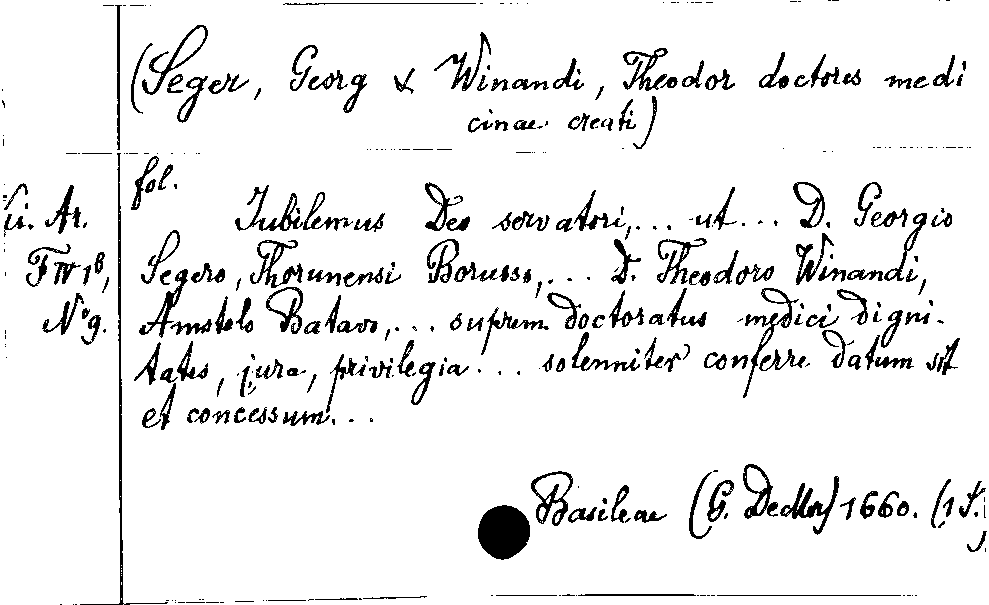 (Seger, Georg & Winandi, Theodor doctores medi
cinae creati)
fol.
Iubilemus Deo servatori,... ut... D. Georgio
Ar.
F IV 1b,
Segero, Thorunensi Borusso,... D. Theodoro Winandi,
No 9.
Amstelo Batavo,... suprem. doctoratus medici digni-
tates, jura, privilegia... solenniter conferre datum sit
et concessum...
Basileae (G. Decker) 1660. (1